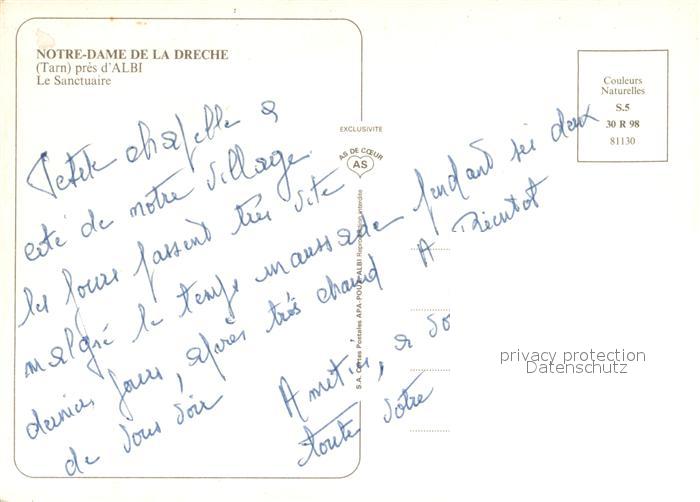 NOTRE-DAME DE LA DRECHE
(Tarn) près d'ALBI
Le Sanctuaire
Couleurs
Naturelles
S.5
30 R 98
81130
EXCLUSIVITE
AS DE CŒUR
AS
S.A. Cartes Postales APA-POUX ALBI Reproduction interdite
Petite chapelle a
coté de notre village.
les jours passent très vite
malgré le temps maussade pendant ses deux
derniers jours, après très chaud A Bientot
de vous voir Amitié, a vo
toute votre
privacy protection
Datenschutz